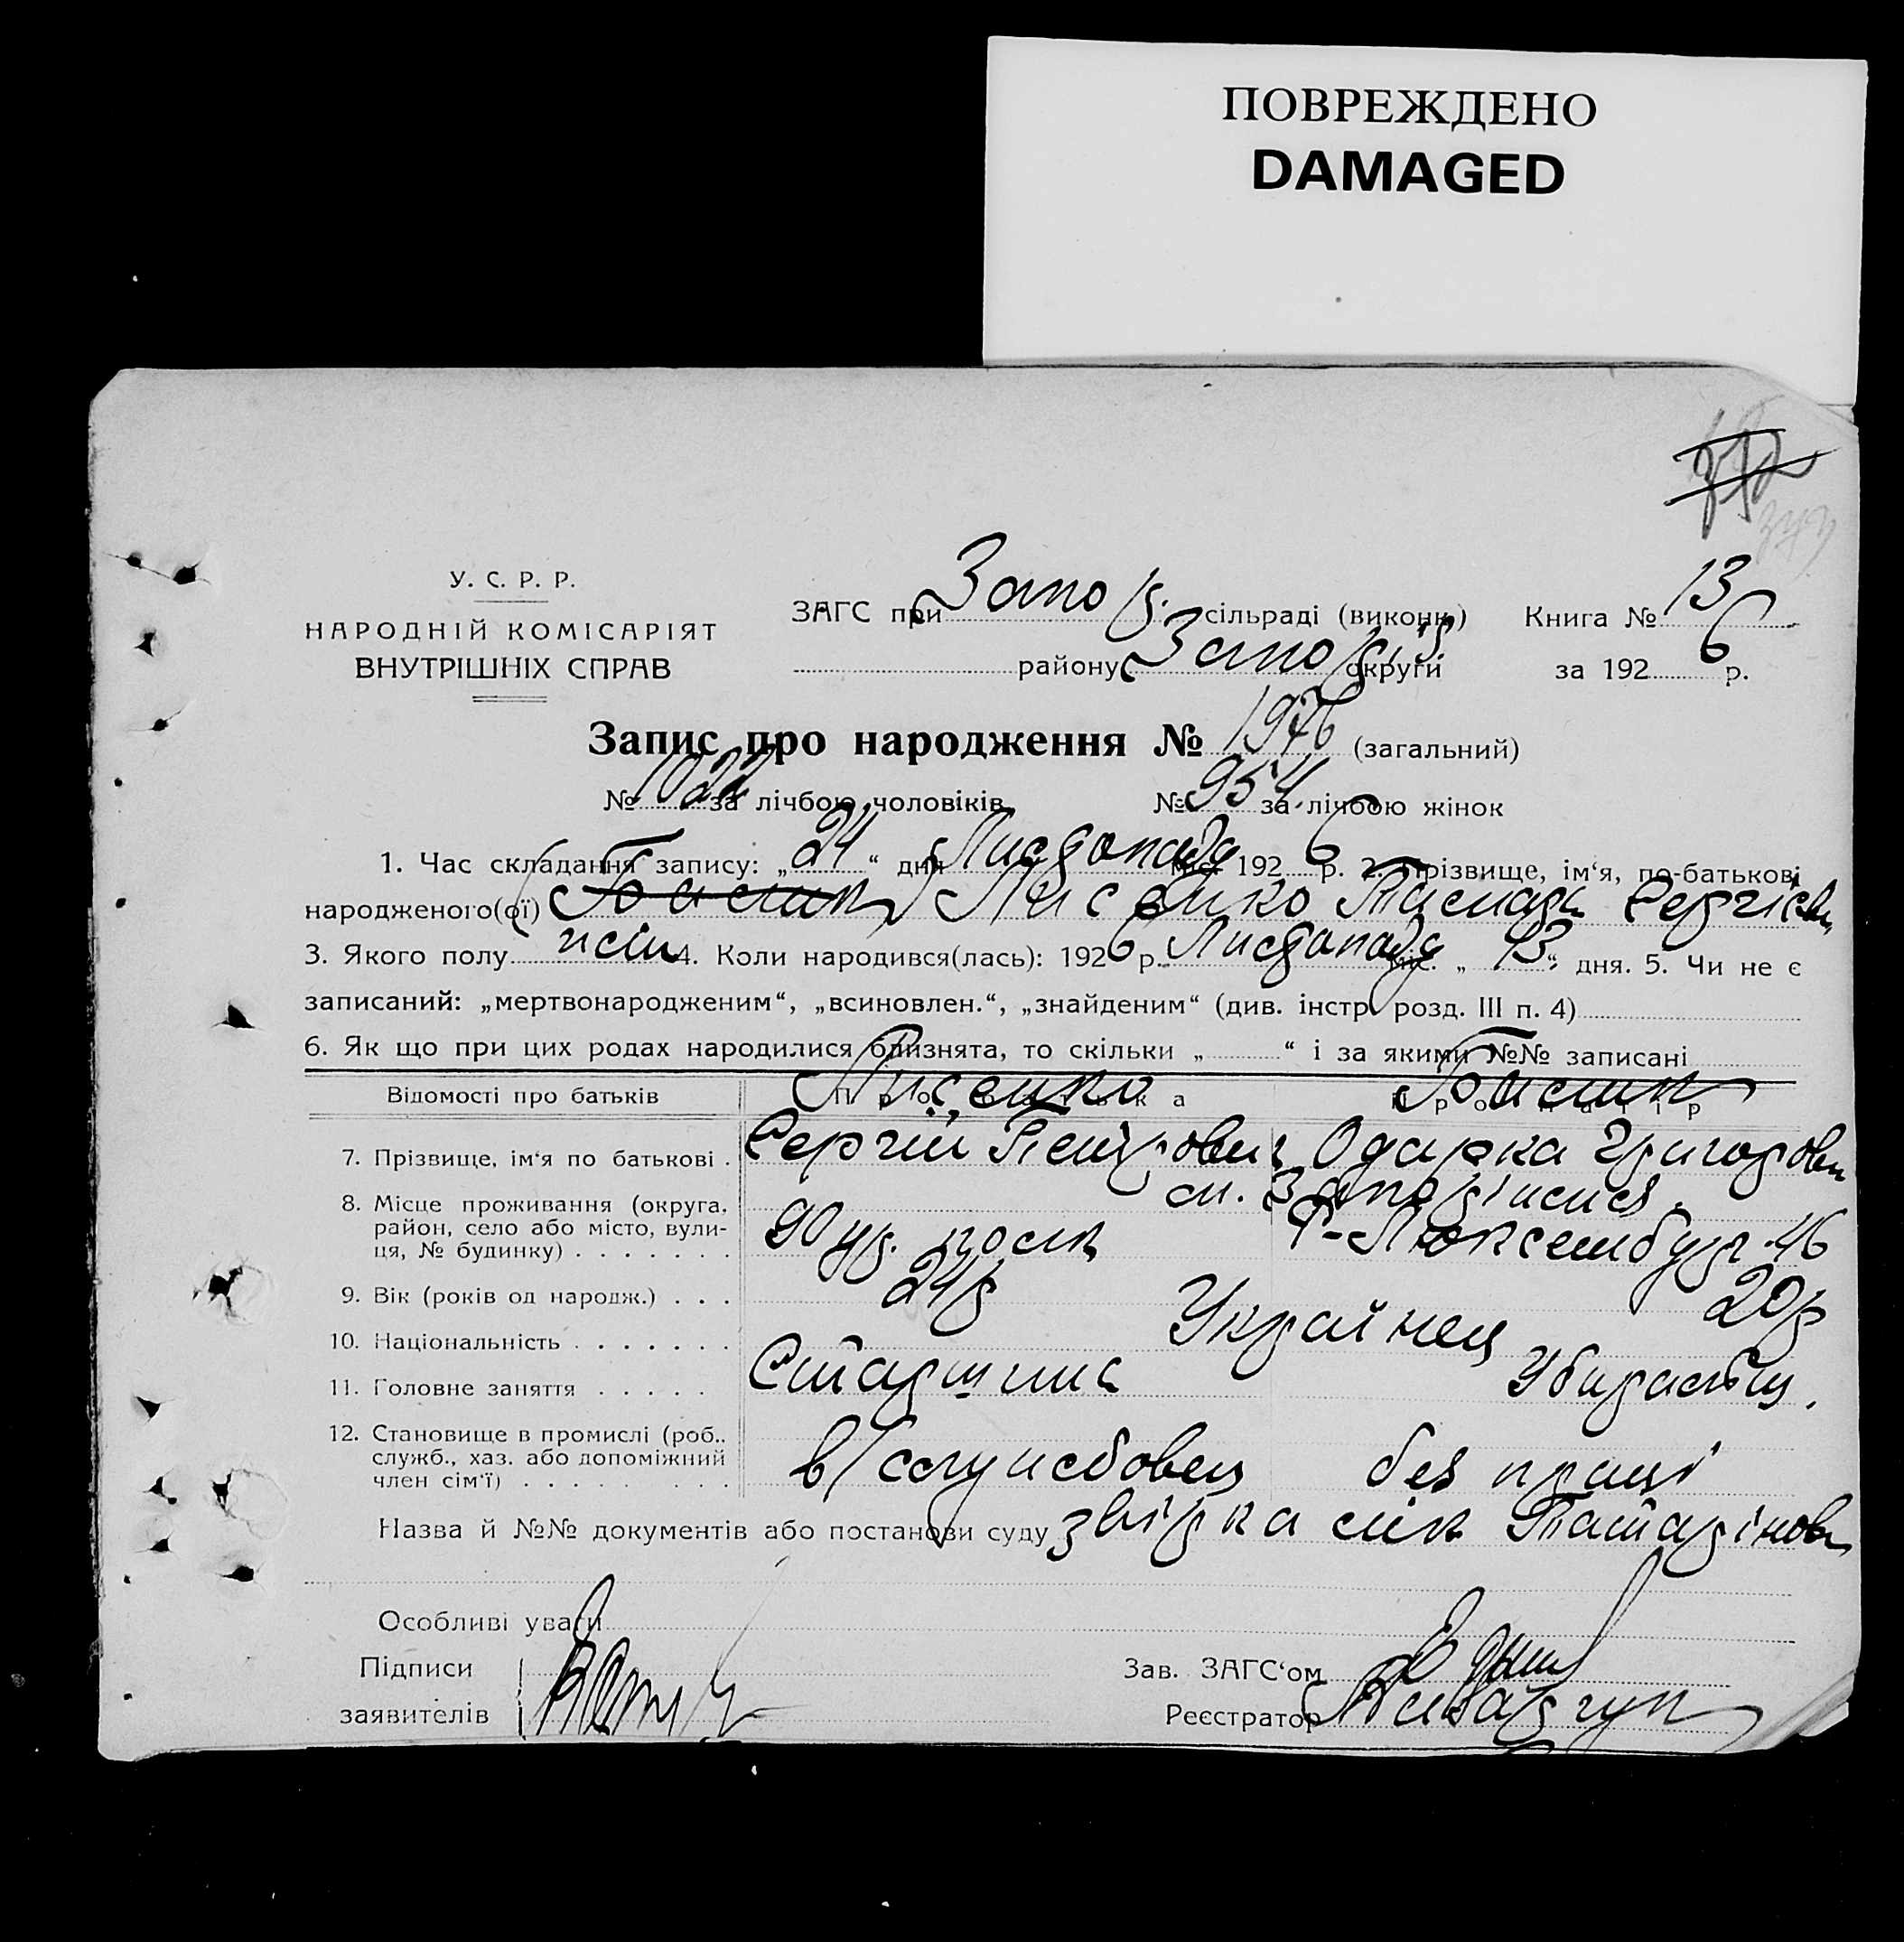 ПОВРЕЖДЕНО
DAMAGED
У. С. Р. Р.
НАРОДНІЙ КОМІСАРІЯТ
ВНУТРІШНІХ СПРАВ
ЗАГС при Запор. сільраді (виконк.) Книга № 13
району Запоріз округи за 1926 р.
Запис про народження № 1976 (загальний)
№ 1022 за лічбою чоловіків № 954 за лічбою жінок
1. Час складання запису: „24“ дня Листопада міс. 1926 р. 2. Прізвище, ім‘я, по-батькові
народженого(ої) Лисенко Сергієв
3. Якого полу жін 4. Коли народився(лась): 1926 р. Листопада міс. „13“ дня. 5. Чи не є
записаний: „мертвонародженим“, „всиновлен.“, „знайденим“ (див. інстр. розд. III п. 4)
6. Як що при цих родах народилися близнята, то скільки „ “ і за якими №№ записані
Відомості про батьків Про батька Про матір
Лисенко
7. Прізвище, ім‘я по батькові . Сергій Петрович Одарка Григоровн
8. Місце проживання (округа, район, село або місто, вулиця, № будинку) . . . . . . . м. Запоріжжя
90 полк Р-Люксембург 46
9. Вік (років од народж.) . . . 24р 20р
10. Національність . . . . . . . Українец
11. Головне заняття . . . . . Старшина
12. Становище в промислі (роб., служб., хаз. або допоміжний член сім‘ї) . . . . . . . . . в/службовец без праці
Назва й №№ документів або постанови суду звірка
Особливі уваги
Підписи
заявителів
Зав. ЗАГС‘ом
Реєстратор